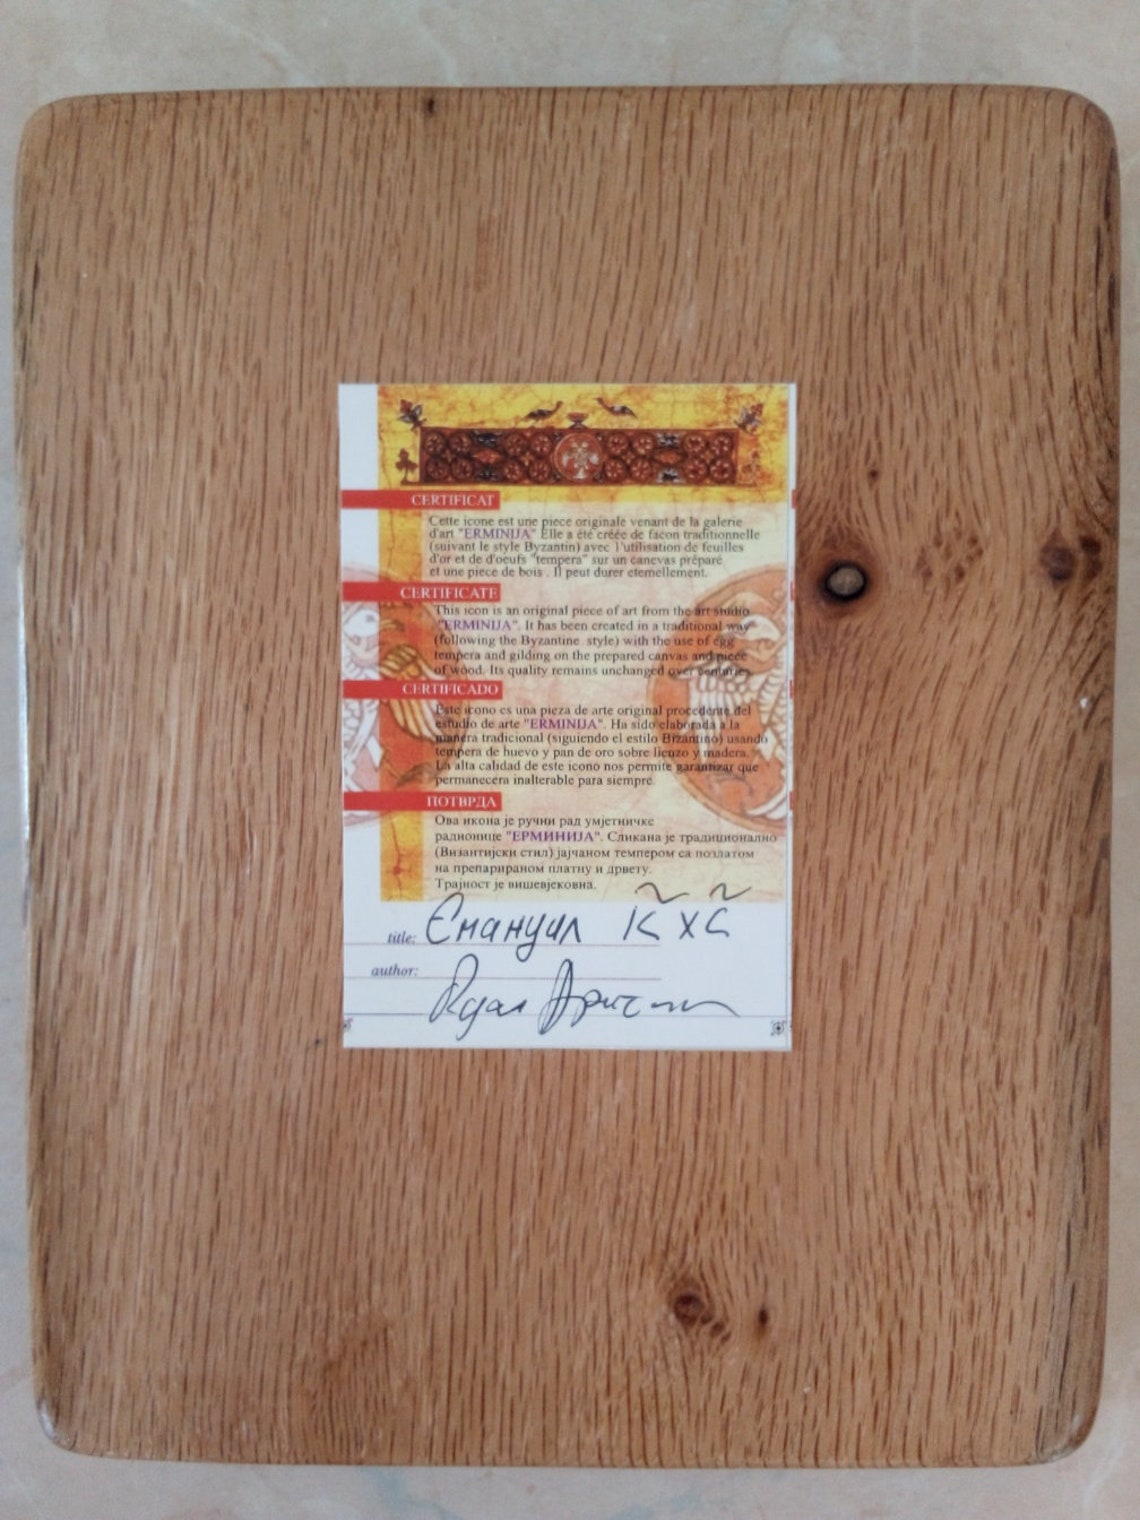 CERTIFICAT
Cette icone est une piece originale venant de la galerie
d'art "ERMINIJA" Elle a été créée de facon traditionnelle
(suivant le style Byzantin) avec l'utilisation de feuilles
d'or et de d'oeufs "tempera" sur un canevas préparé
et une piece de bois . Il peut durer eternellement.
CERTIFICATE
This icon is an original piece of art from the art studio
"ERMINIJA". It has been created in a traditional way
(following the Byzantine style) with the use of egg
tempera and gilding on the prepared canvas and piece
of wood. Its quality remains unchanged over centuries.
CERTIFICADO
Este icono es una pieza de arte original procedente del
estudio de arte "ERMINIJA". Ha sido elaborada a la
manera tradicional (siguiendo el estilo Bizantino) usando
tempera de huevo y pan de oro sobre lienzo y madera.
La alta calidad de este icono nos permite garantizar que
permanecera inalterable para siempre.
ПОТВРДА
Ова икона је ручни рад умјетничке
радионице "ЕРМИНИЈА". Сликана је традиционално
(Византијски стил) јајчаном темпером са позлатом
на препарираном платну и дрвету.
Трајност је вишевјековна.
title: Емануил
author: